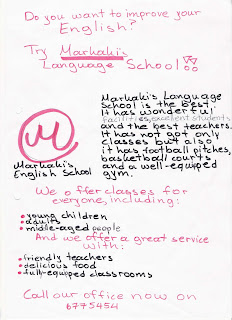 Do you want to improve your
English?
Try Markaki's
Language School!!!
Markaki's Language
School is the best.
It has wonderful
facilities, excellent students
and the best teachers.
It has not got only
classes but also
it has football pitches,
basketball courts
and a well-equiped
gym.
M
Markaki's
English School
We offer classes for
everyone, including:
• young children
• adults
• middle-aged people
And we offer a great service
with:
• friendly teachers
• delicious food
• full-equipped classrooms
Call our office now on
6775454